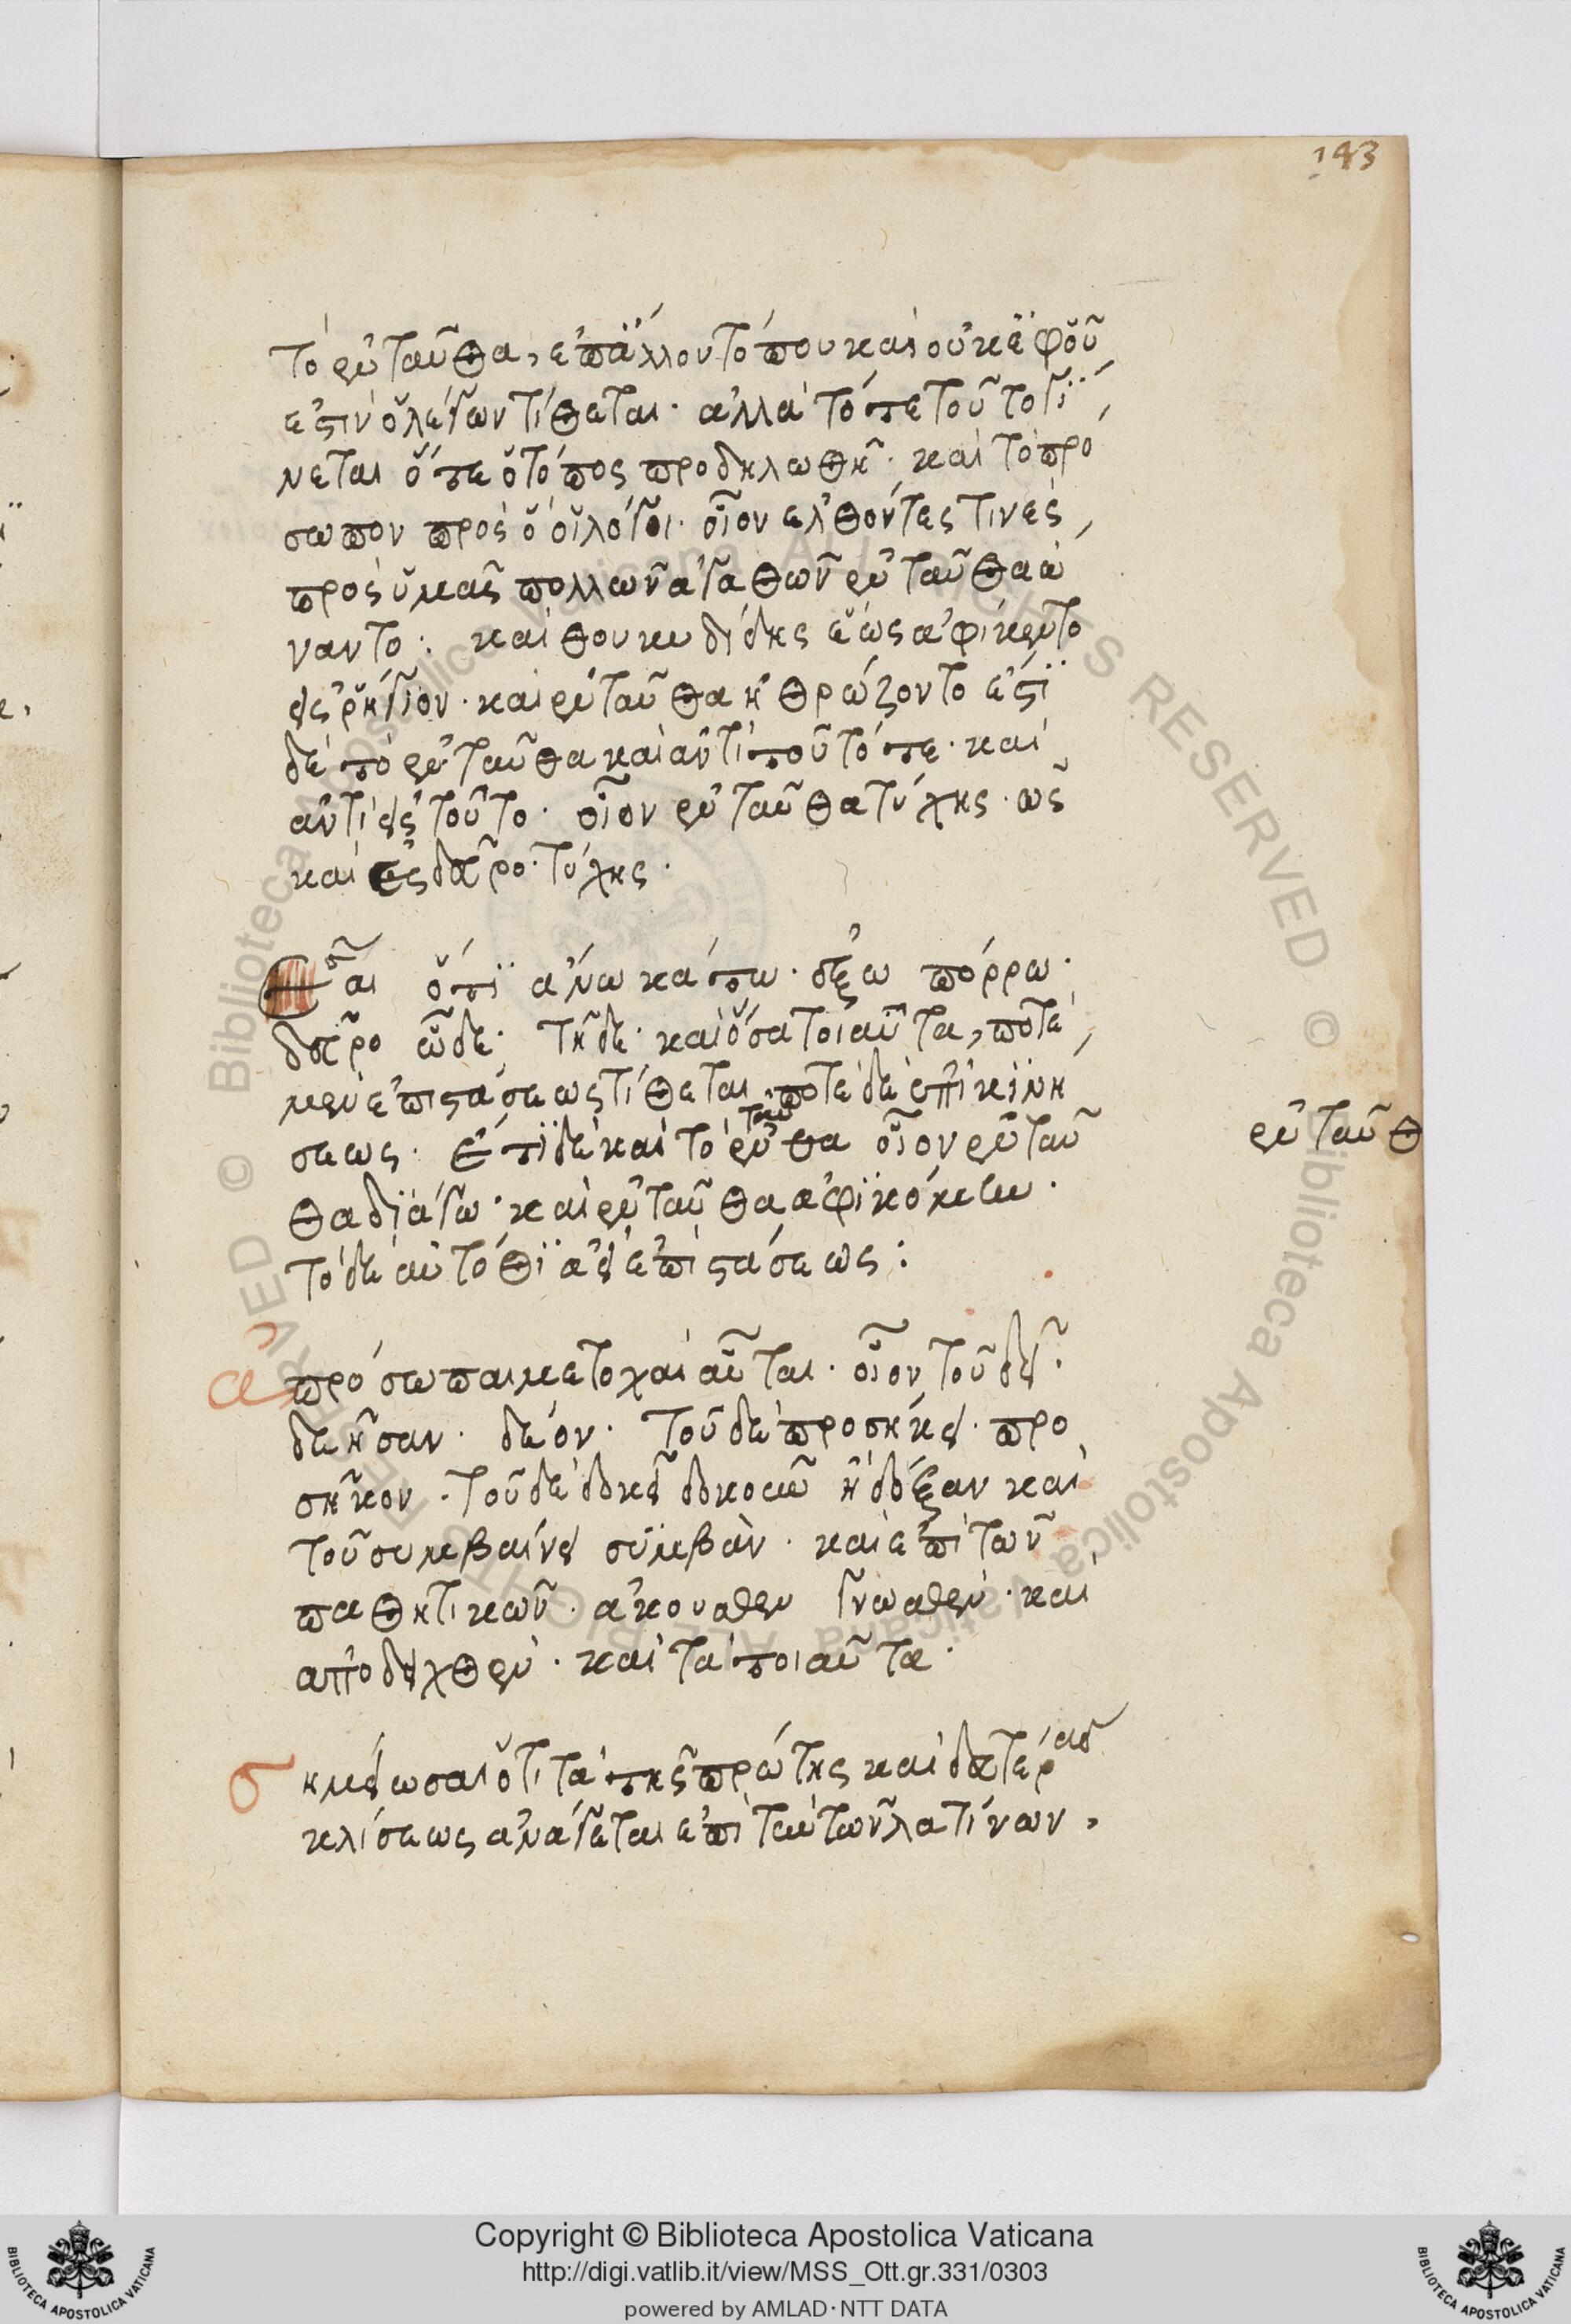 143
τὸ ἐνταῦθα, ἐπ' ἄλλου τόπου καὶ οὐκ ἐφ' οὗ
ἐστὶν ὁ λέγων τίθεται. ἀλλὰ τότε τοῦτο γί
νεται ὅτε ὁ τόπος προδηλωθῆ. καὶ τὸ πρό
σωπον πρὸς ὃ οἱ λόγοι. οἷον ἐλθόντες τινὲς
πρὸς ὑμᾶς πολλῶν ἀγαθῶν ἐνταῦθα ὤ
ναντο. καὶ θουκυδίδης ἕως ἀφίκοντο
εἰς ῥήγιον. καὶ ἐνταῦθα ἠθροίζοντο ἔστι
δὲ τὸ ἐνταῦθα καὶ ἀντὶ τοῦ τότε. καὶ
ἀντὶ εἰς τοῦτο. οἷον ἐνταῦθα τύχης. ὡς
καὶ εἰς δεῦρο τύχης.
ὅτι ἄνω κάτω. ἔξω πόρρω.
δεῦρο ὧδε. τῆδε. καὶ ὅσα τοιαῦτα, ποτὲ
μὲν ἐπὶ στάσεως τίθεται, ποτὲ δὲ ἐπὶ κινή
σεως. ἔτι δὲ καὶ τὸ ἐνταῦθα οἷον ἐνταῦ
ἐνταῦθ
θα διάγω. καὶ ἐνταῦθα ἀφικόμην.
τὸ δὲ αὐτόθι ἀεὶ ἐπὶ στάσεως:
ἀπρόσωπαι μετοχαὶ αὗται. οἷον τοῦ δεῖ.
δεῆσαν. δέον. τοῦ δὲ προσήκει. προ
σῆκον. τοῦ δὲ δοκεῖ δοκοῦν ἢ δόξαν καὶ
τοῦ συμβαίνει συμβάν. καὶ ἐπὶ τῶν
παθητικῶν. ἀκουσθὲν γνωσθέν. καὶ
ἀποδειχθέν. καὶ τὰ τοιαῦτα.
σημείωσαι ὅτι τὰ τῆς πρώτης καὶ δευτέρας
κλίσεως ἀνάγεται ἐπὶ τῶν λατίνων,
Copyright © Biblioteca Apostolica Vaticana
http://digi.vatlib.it/view/MSS_Ott.gr.331/0303
powered by AMLAD·NTT DATA